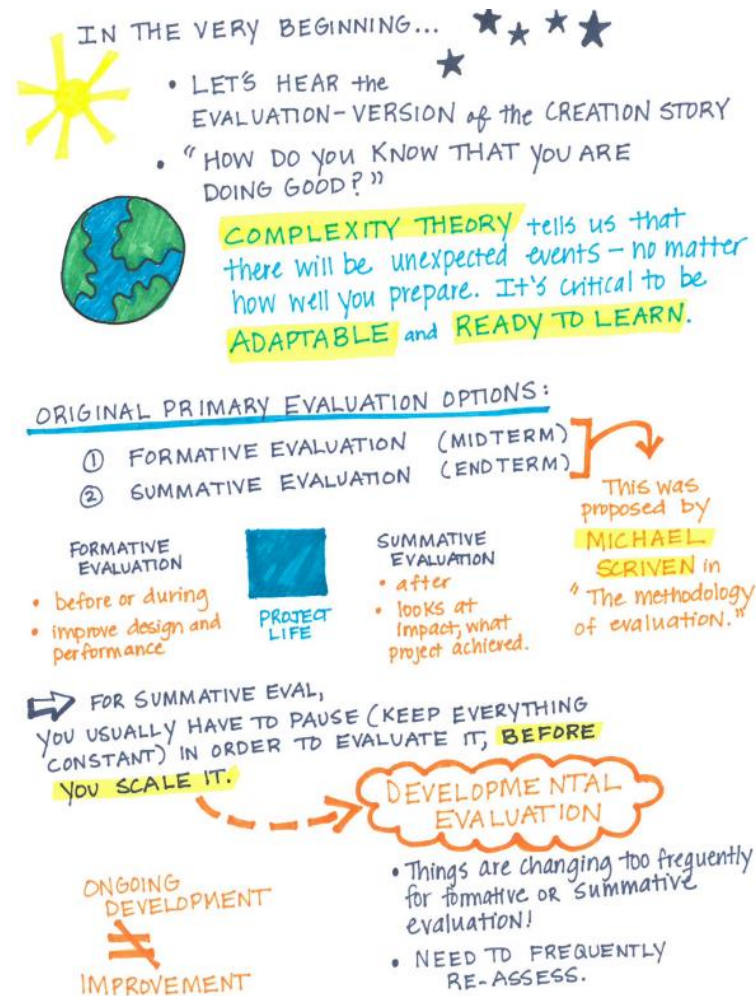 IN THE VERY BEGINNING...
• LET'S HEAR the
EVALUATION-VERSION of the CREATION STORY
• "HOW DO YOU KNOW THAT YOU ARE
DOING GOOD?"
COMPLEXITY THEORY tells us that
there will be unexpected events – no matter
how well you prepare. It's critical to be
ADAPTABLE and READY TO LEARN.
ORIGINAL PRIMARY EVALUATION OPTIONS:
① FORMATIVE EVALUATION (MIDTERM)
② SUMMATIVE EVALUATION (ENDTERM)
This was
proposed by
MICHAEL
SCRIVEN in
"The methodology
of evaluation."
FORMATIVE
EVALUATION
• before or during
• improve design and
performance
PROJECT
LIFE
SUMMATIVE
EVALUATION
• after
• looks at
impact, what
project achieved.
FOR SUMMATIVE EVAL,
YOU USUALLY HAVE TO PAUSE (KEEP EVERYTHING
CONSTANT) IN ORDER TO EVALUATE IT, BEFORE
YOU SCALE IT.
DEVELOPMENTAL
EVALUATION
• Things are changing too frequently
for formative OR summative
evaluation!
• NEED TO FREQUENTLY
RE-ASSESS.
ONGOING
DEVELOPMENT
≠
IMPROVEMENT